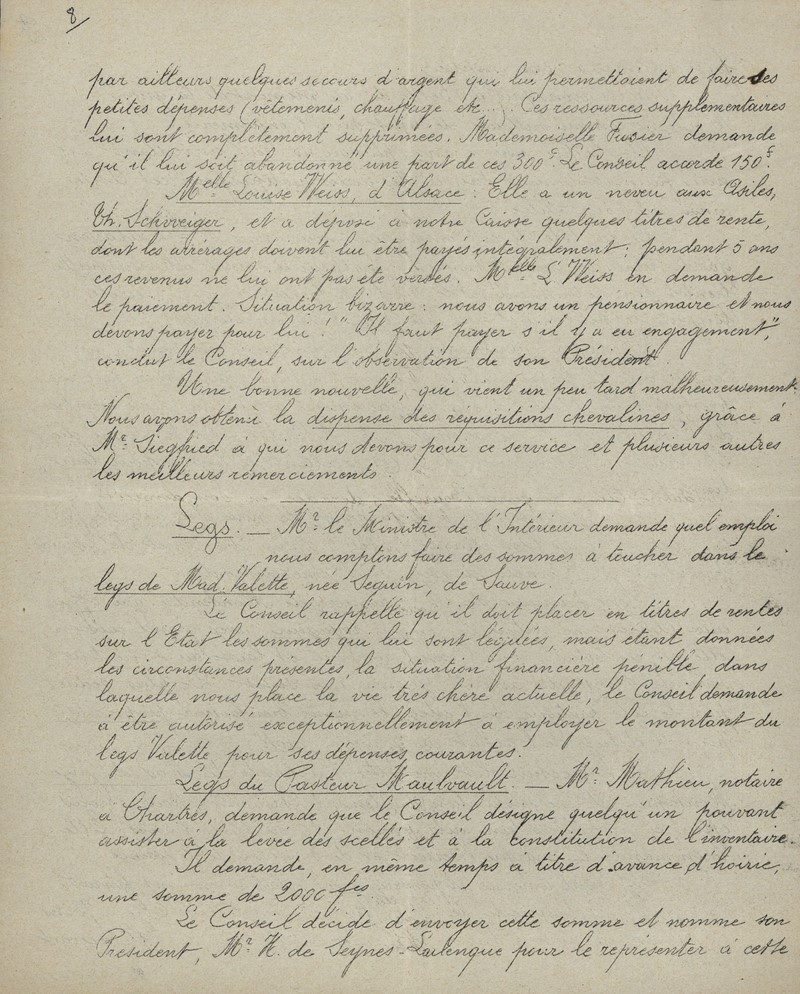 8
par ailleurs quelques secours d'argent qui lui permettaient de faire ses
petites dépenses (vêtements, chauffage etc...). Ces ressources supplémentaires
lui sont complètement supprimées. Mademoiselle Fusier demande
qu'il lui soit abandonné une part de ces 300f. Le Conseil acorde 150f.
Melle Louise Weiss, d'Alsace. Elle a un neveu aux Asiles,
Th. Schweiger, et a déposé à notre Caisse quelques titres de rente,
dont les arrérages doivent lui être payés intégralement; pendant 5 ans
ces revenus ne lui ont pas été versés. Melle L. Weiss en demande
le paiement. Situation bizarre: nous avons un pensionnaire et nous
devons payer pour lui! "Il faut payer s'il y a eu engagement",
conclut le Conseil, sur l'observation de son Président.
Une bonne nouvelle, qui vient un peu tard malheureusement.
Nous avons obtenu la dispense des réquisitions chevalines, grâce à
Mr. Siegfried à qui nous devons pour ce service et plusieurs autres
les meilleurs remerciements.
Legs. — Mr. le Ministre de l'Intérieur demande quel emploi
nous comptons faire des sommes à toucher dans le
legs de Mad. Valette, née Seguin, de Sauve.
Le Conseil rappelle qu'il doit placer en titres de rentes
sur l'Etat les sommes qui lui sont léguées, mais étant données
les circonstances présentes, la situation financière pénible dans
laquelle nous place la vie très chère actuelle, le Conseil demande
à être autorisé exceptionnellement à employer le montant du
legs Valette pour ses dépenses courantes.
Legs du Pasteur Maulvault. — Mr. Mathieu, notaire
à Chartres, demande que le Conseil désigne quelqu'un pouvant
assister à la levée des scellés et à la constitution de l'inventaire.
Il demande, en même temps à titre d'avance d'hoirie,
une somme de 2000 fcs
Le Conseil décide d'envoyer cette somme et nomme son
Président, Mr. H. de Seynes-Larlenque pour le représenter à cette